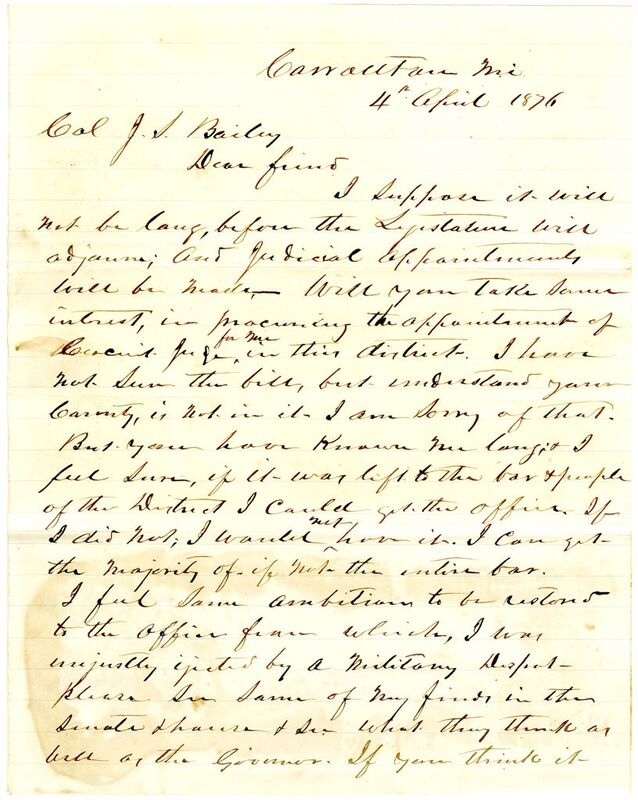 Carrollton Mi
4th April 1876
Col J. S. Bailey
Dear friend
I suppose it will
not be long, before the Legislature will
adjourn; And Judicial appointments
will be made,— Will you take some
interest, in procuring the appointment of
Circuit Juge, for me in this district. I have
not seen the bill, but understand your
County, is not in it I am sorry of that.
But you have known me long; & I
feel sure, if it was left to the bar & people
of the District I could get the office. If
I did not; I would not have it. I can get
the majority of if not the entire bar.
I feel some ambition to be restored
to the office from which, I was
unjustly ejected by a Military Despot—
please see some of my friends in the
senate & house & see what they think as
well as the Governor. If you think it